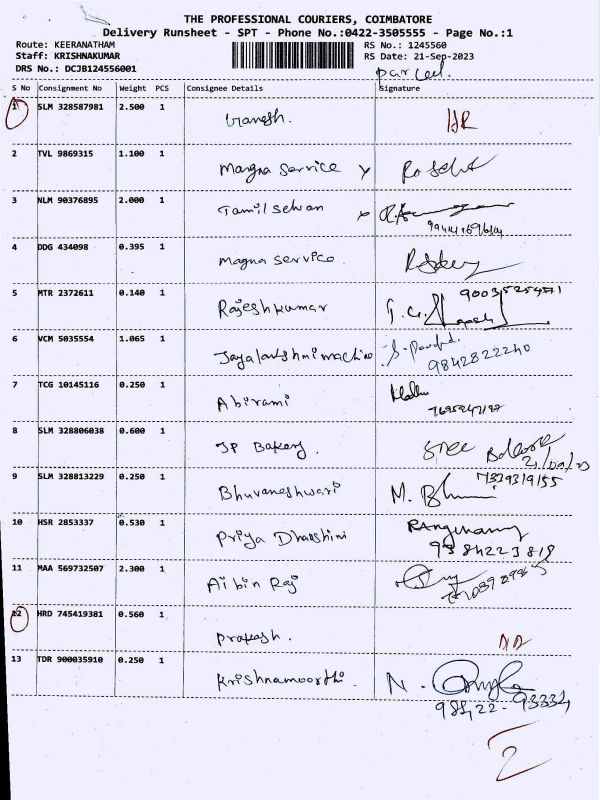 THE PROFESSIONAL COURIERS, COIMBATORE
Delivery Runsheet - SPT - Phone No.:0422-3505555 - Page No.:1
Route: KEERANATHAM RS No.: 1245560
Staff: KRISHNAKUMAR RS Date: 21-Sep-2023
DRS No.: DCJB124556001 parcel.
S No Consignment No Weight PCS Consignee Details Signature
1 SLM 328587981 2.500 1
Ganesh.
2 TVL 9869315 1.100 1
Magna Service x
3 NLM 90376895 2.000 1
Tamil Selvan x
4 DDG 434098 0.395 1
magna service.
5 MTR 2372611 0.140 1
Rajeshkumar
6 VCM 5035554 1.065 1
Jayalakshmi machine
9842822240
7 TCG 10145116 0.250 1
Abirami
8 SLM 328806038 0.600 1
JP Bakery.
Sree
9 SLM 328813229 0.250 1
Bhuvaneshwari M.
10 HSR 2853337 0.530 1
Priya Dharshini
9384223818
11 MAA 569732507 2.300 1
Aibin Raj
12 HRD 745419381 0.560 1
prakash.
13 TDR 900035910 0.250 1
Krishnamoorthi. N.
2